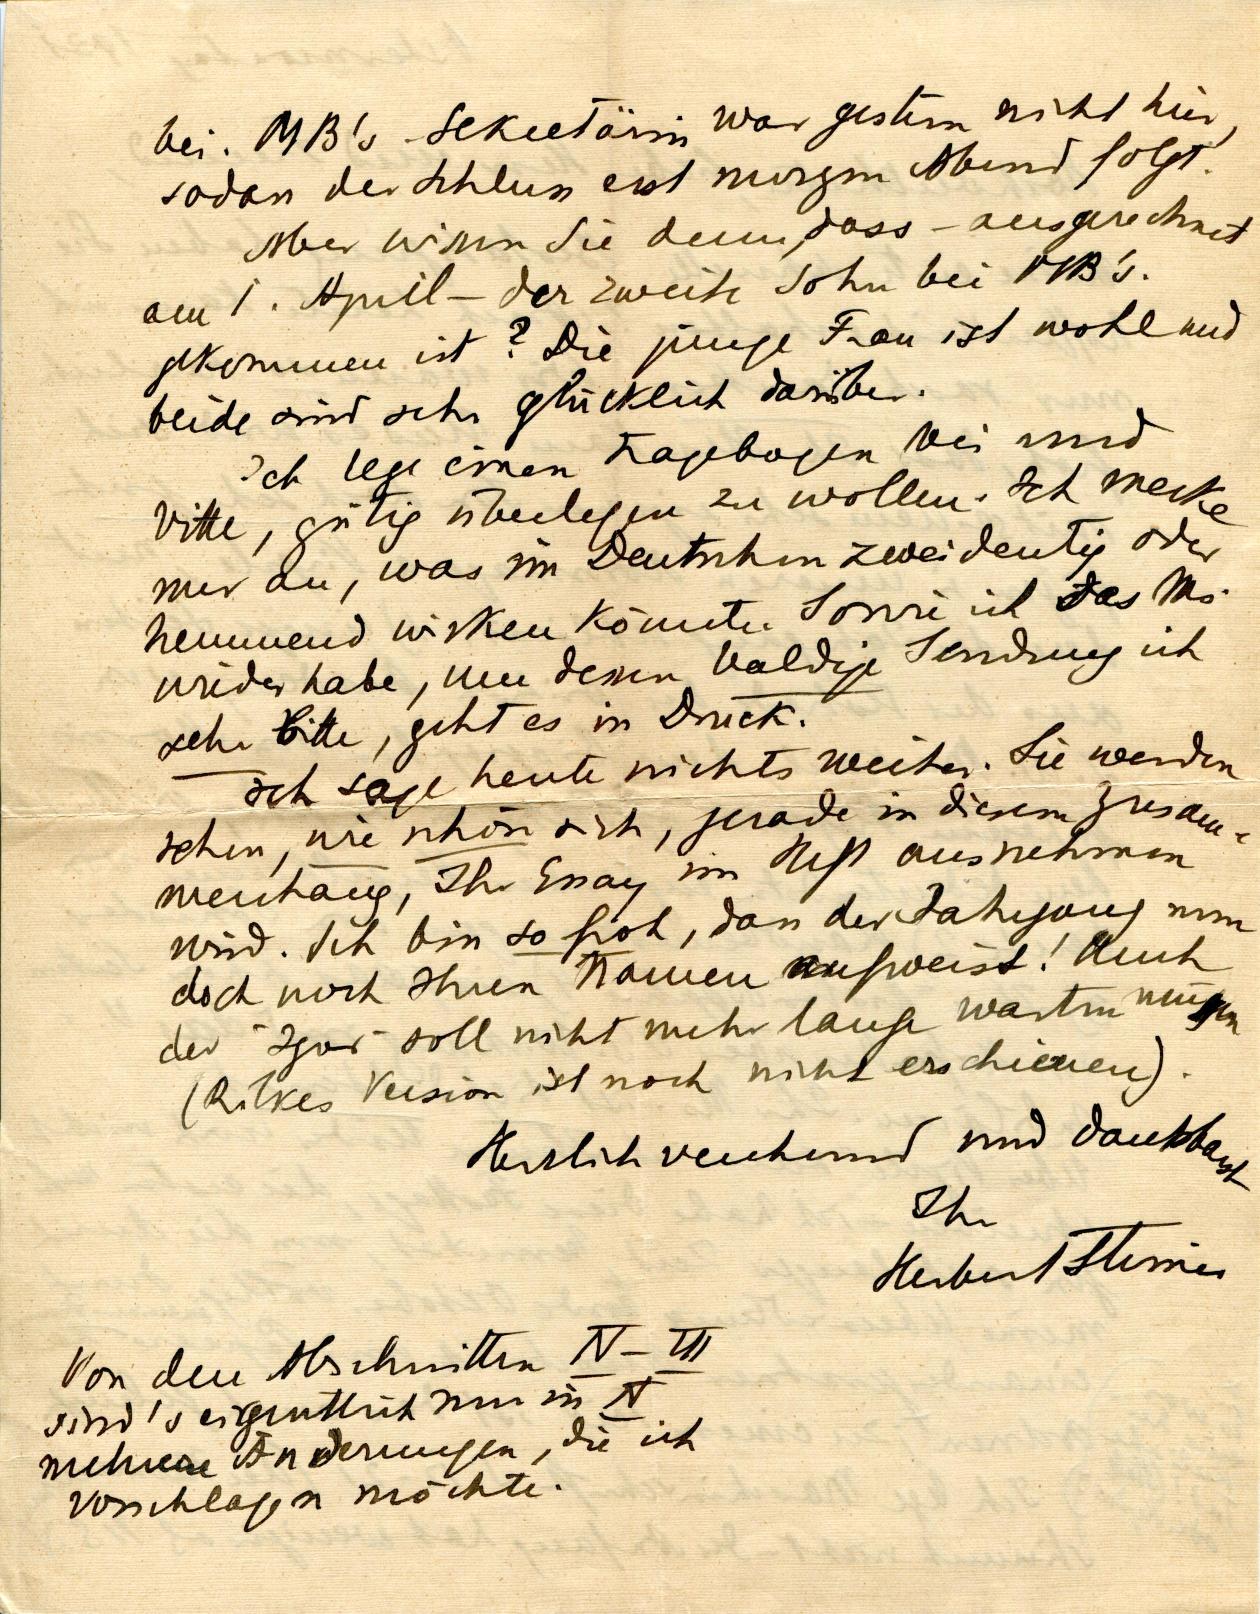 bei. MB's Sekretärin war gestern nicht hier,
sodass der Schluss erst morgen Abend folgt.
Aber wissen Sie denn, dass – ausgerechnet
am 1. April – der zweite Sohn bei MB's.
gekommen ist? Die junge Frau ist wohl und
beide sind sehr glücklich darüber.
Ich lege einen Fragebogen bei und
bitte, gütig überlegen zu wollen. Ich merke
mir an, was im Deutschen zweideutig oder
hemmend wirken könnte. Sowie ich das Ms.
wieder habe, um dessen baldige Sendung ich
sehr bitte, geht es in Druck.
Ich sage heute nichts weiter. Sie werden
sehen, wie schön sich, gerade in diesem Zusam-
menhang, Ihr Essay im Heft ausnehmen
wird. Ich bin so froh, dass der Jahrgang nun
doch noch Ihren Namen aufweist! Auch
der "Igor" soll nicht mehr lange warten müssen
(Rilkes Version ist noch nicht erschienen).
Herzlich verehrend und dankbarst
Ihr
Herbert Steiner
Von den Abschnitten
sind's eigentlich nur in
mehrere Änderungen, die ich
vorschlagen möchte.